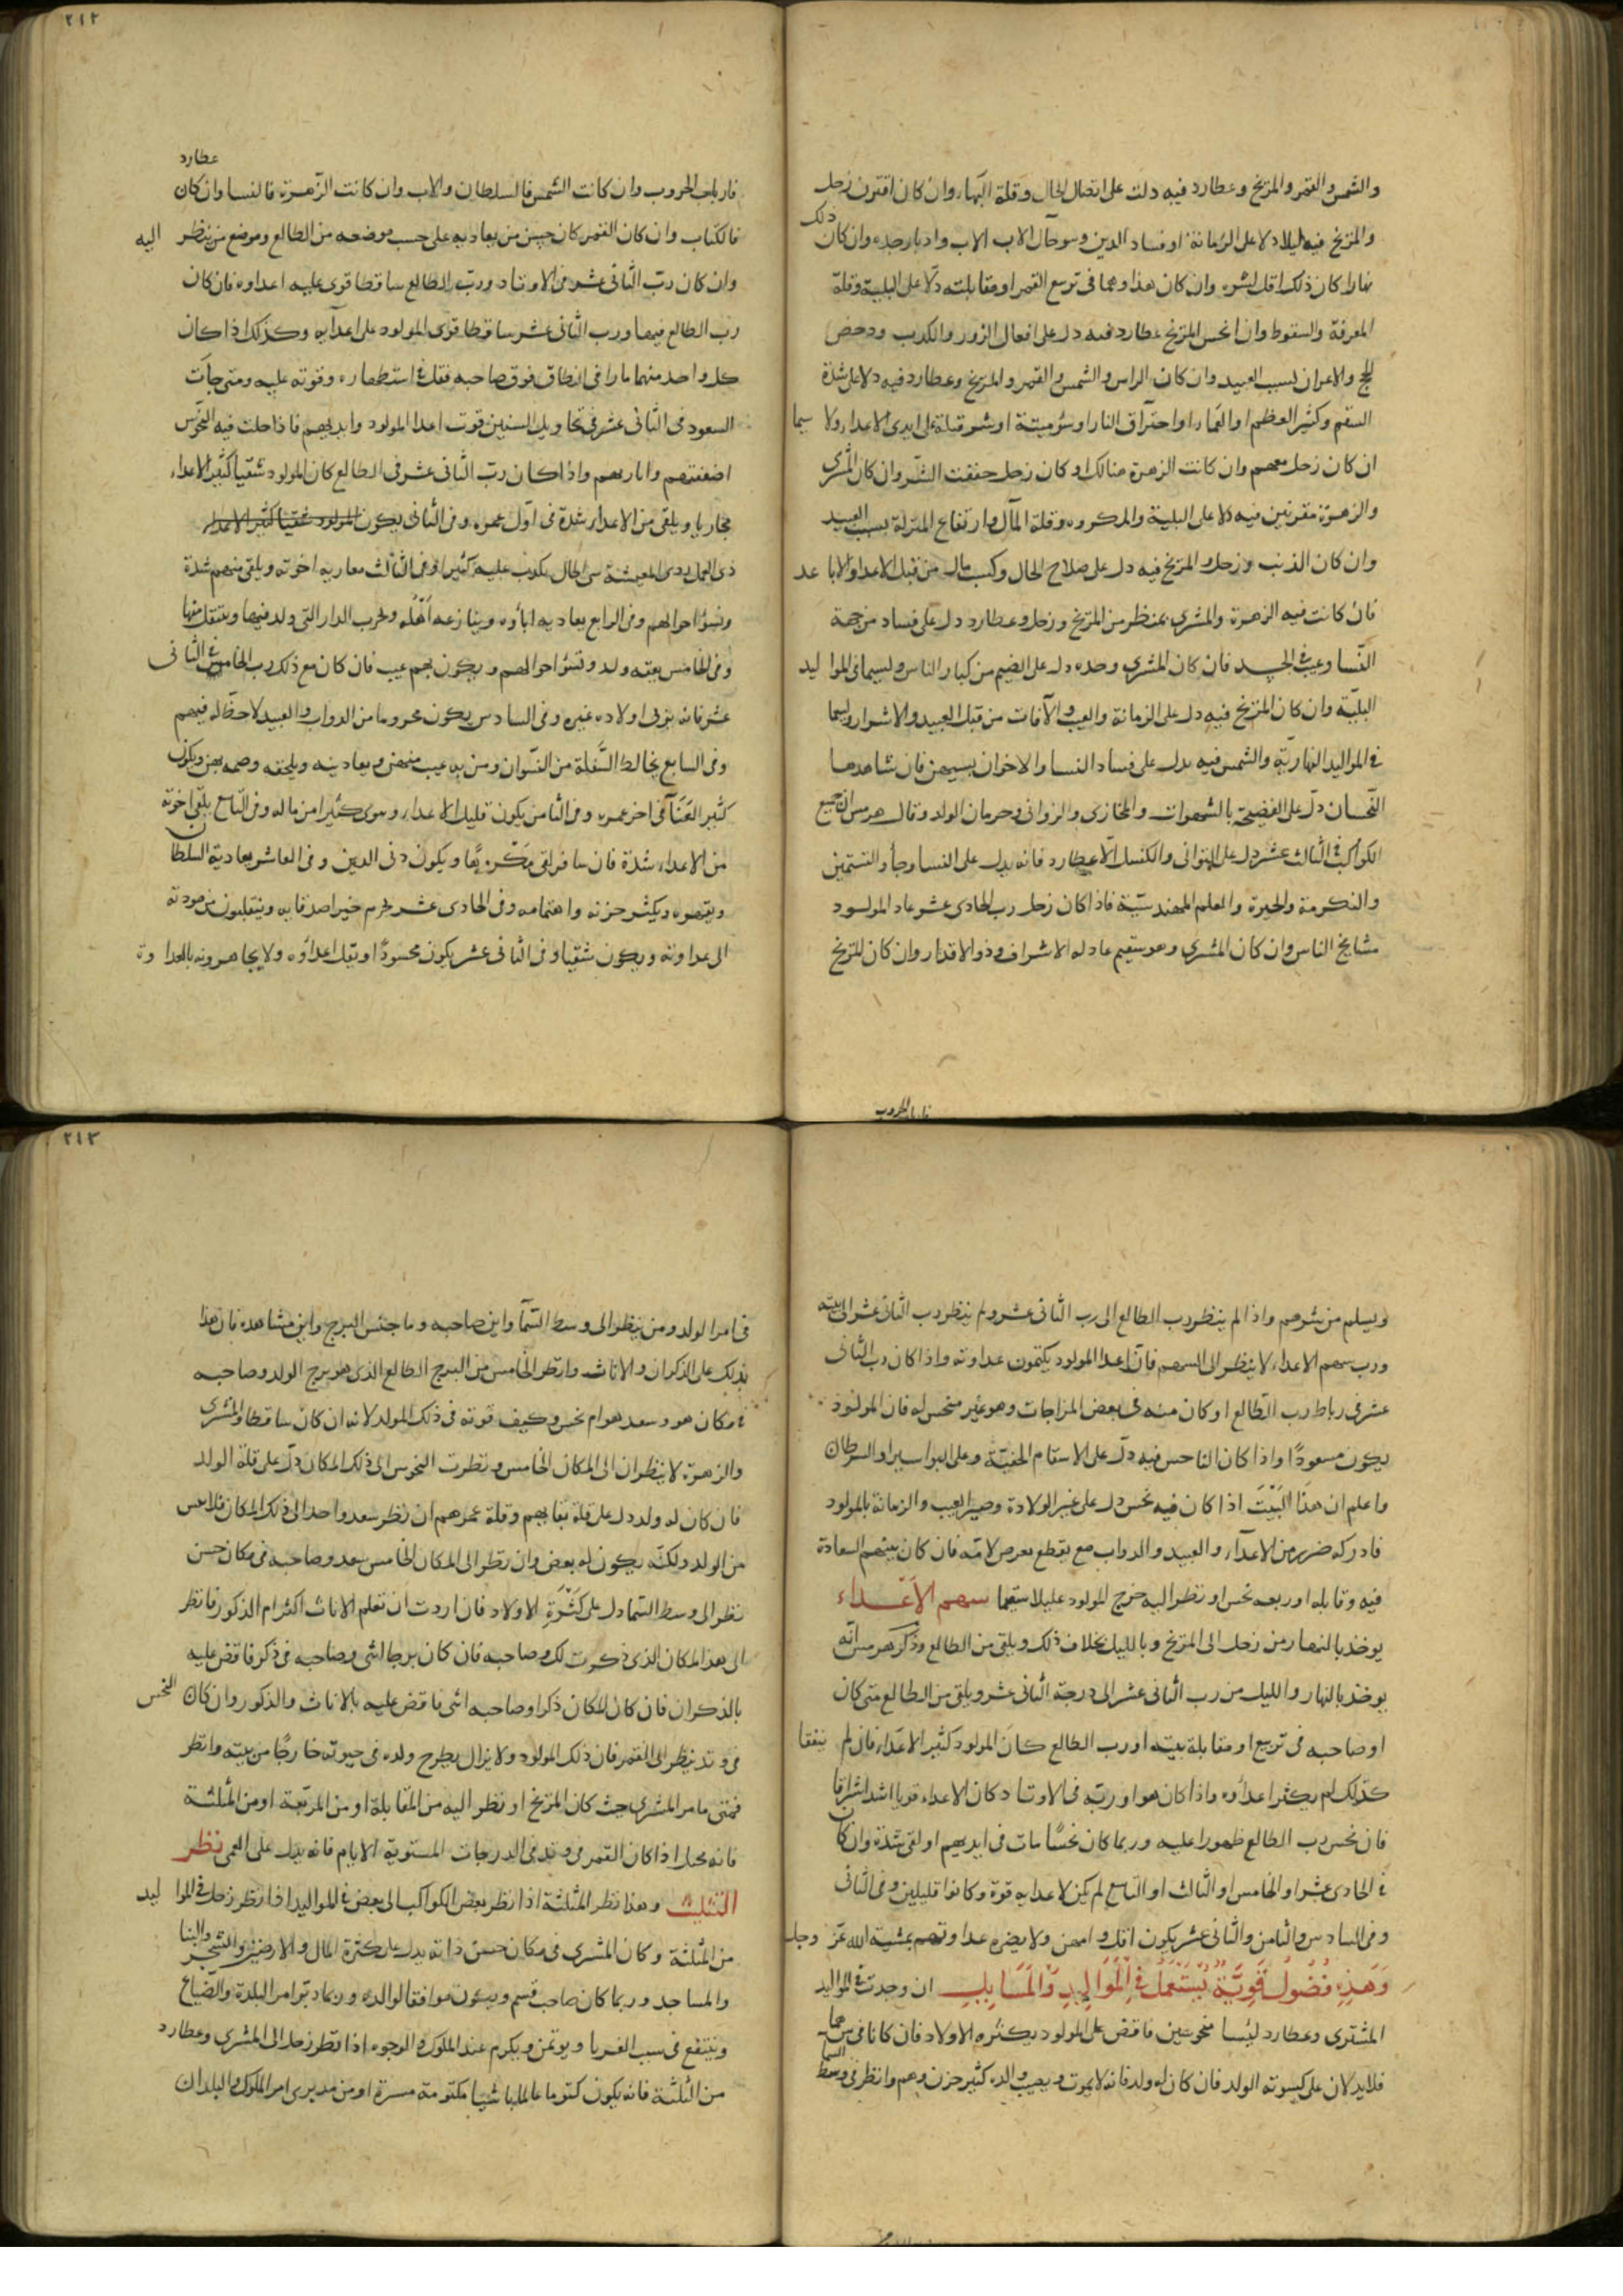 ٢١٢
والشمس والقمر والمريخ وعطارد فيه دلت على اتصال الحال وقلة البهاء وان كان اقترن زحل
والمريخ فيه ليلا دلا على الزمانة او فساد الدين وسوحال الاب وادبار جده وان كان ذلك
نهارا كان ذلك اقل لشره وان كان هذا وهما في تربيع القمر او مقابلته دلا على البلية وقلة
المعرفة والسقوط وان انحس المريخ عطارد فيه دل على افعال الزور والكذب ودحض
الحج والاعران بسبب العبيد وان كان الراس والشمس والقمر والمريخ وعطارد فيه دلا على شدة
السقم وكثير العظم او العماء او احتراق النار او سؤ ميتة او شر قتلة على ايدى الاعداء ولا سيما
ان كان زحل معهم وان كانت الزهرة هنالك او كان زحل حققت الشر وان كان المشرى
والزهرة مقرنين فيه دلا على البلية والمكروه وقلة المال وارتفاع المنزلة بسبب العبيد
وان كان الذنب وزحل والمريخ فيه دل على صلاح الحال وكسب مال من قبل الاعداء والاباعد
فان كانت فيه الزهرة والمشرى بمنظر من المريخ وزحل وعطارد دل على فساد من جهة
النسا وعيب في الجسد فان كان المشرى وحده دل على الضيم من كبار الناس ولسيما في المواليد
البلية وان كان المريخ فيه دل على الزمانة والعيب والآفات من قبل العبيد والاشرار ولسيما
في المواليد النهارية والشمس فيه يدل على فساد النسا والاخوان بسببهن فان شاهدها
النحسان دل على الفضيحة بالشهوات والمخازى والزوانى وحرمان الولد وقال هرمس ان جميع
الكواكب في الثالث عشر دل على التوانى والكسل الا عطارد فانه يدل على النسا وجاء والتستمين
والتكرمة والحيرة والعلم المهندسية فاذا كان زحل رب الحادى عشر عاد المولود
مشايخ الناس وان كان المشرى وهو سقيم عاد له الاشراف وذو الاقدار وان كان المريخ
فارباب الحروب
فارباب الحروب وان كانت الشمس فالسلطان والاب وان كانت الزهرة فالنسا وان كان عطارد
فالكتاب وان كان القمر كان حسن من يعاديه على حسب موضعه من الطالع وموضع من ينظر اليه
وان كان رب الثانى عشر من الاوتاد ورب الطالع ساقطا قوى عليه اعداوه فان كان
رب الطالع فيها ورب الثانى عشر ساقطا قوى المولود على اعدايه وكذلك اذا كان
كل واحد منهما مارا في النطاق فوق صاحبه فقل في استظهاره وقوته عليه ومتى جات
السعود في الثانى عشر في تحاويل السنين قوت اعدا المولود وايديهم فاذا حلت فيه النحوس
اضعفتهم وابارتهم واذا كان رب الثانى عشر في الطالع كان المولود شقيا كثير الاعداء
محاربا ويلقى من الاعداء شدة في اول عمره وفي الثانى يكون المولود شقيا كثير الاعداء
ذى العمل ردى المعيشة سى الحال يكذب عليه كثيرا وفي الثالث معاريه اخوته ويلقى منهم شدة
وتسؤ احوالهم وفي الرابع يعاديه اباؤه وينازعه اهله ويخرب الدار التى ولد فيها وينتقل منها
وفي الخامس يعقه ولد وتسؤ احوالهم ويكون بهم عيب فان كان مع ذلك رب الخامس في الثانى
عشر فانه يربى اولاده غيره وفي السادس يكون محروما من الدواب والعبيد لا حظ له فيهم
وفي السابع يخالط السفلة من النسوان ومن به عيب منهن ويعادينه ويلحقه وصمه بهن ويكون
كثير العنا في اخر عمره وفي الثامن يكون قليل الاعداء ويوى كثيرا من ماله وفي التاسع يلقى اخوته
من الاعداء شدة فان سافر لقى مكروها ويكون دنى الدين وفي العاشر يعاديه السلطان
ويقهره ويكثر حزنه واهتمامه وفي الحادى عشر يحرم خير اصدقايه وينقلبون من مودته
الى عداوته ويكون شقيا وفي الثانى عشر يكون محسودا وتقل اعداؤه ولا يجاهرونه بالعداوة
٢١٣
ويسلم من شرهم واذا لم ينظر رب الطالع الى رب الثانى عشر ولم ينظر رب الثانى عشر الى بيته
ورب سهم الاعداء لا ينظر الى السهم فان اعدا المولود يكتمون عداوته واذا كان رب الثانى
عشر في رباط رب الطالع او كان منه في بعض المزاجات وهو غير منحس له فان المولود
يكون مسعودا واذا كان الناحس فيه دل على الاسقام الخفية وعلى البواسير او السرطان
واعلم ان هذا البيت اذا كان فيه نحس دل على غير الولادة وصير العيب والزمانة بالمولود
فادركه ضرير من الاعداء والعبيد والدواب مع يقطع يعرض لامه فان كان بيتهم السعادة
فيه وقابله او ربعه نحس او نظر اليه خرج المولود عليلا سقيما سهم الاعداء
يوخذ بالنهار من زحل الى المريخ وبالليل بخلاف ذلك ويلقى من الطالع وذكر هرمس انه
يوخذ بالنهار والليل من رب الثانى عشر الى درجة الثانى عشر ويلقى من الطالع متى كان
او صاحبه في تربيع او مقابلة بيته او رب الطالع كان المولود كثير الاعداء فان لم يتفقا
كذلك لم يكثر اعداوه واذا كان هو او ربه في الاوتاد كان الاعداء قويا اشد اشراقا
فان نحس رب الطالع ظهورا عليه وربما كان نحسا مات في ايديهم او لقى شدة وان كان
في الحادى عشر او الخامس او الثالث او التاسع لم يكن لاعدايه قوة وكانوا قليلين وفي الثانى
وفي السادس والثامن والثانى عشر يكون اقل وامهن ولا يضره عداوتهم بمشية الله عز وجل
وهذه فصول قوية تستعمل في المواليد والمسايل ان وجدت في المواليد
المشترى وعطارد ليسا منحوسين فاقض على المولود بكثرة الاولاد فان كانا في سهما
فلا يدلان على كسوته الولد فان كان له ولد فانه لا يموت ويصيب والده كثير حزن وهم وانظر في وسط السما
في امر الولد ومن ينظر الى وسط السمآ واين صاحبه وما جنس البرج واين مشاهده فان هذا
يدلك على الذكران والاناث وانظر الخامس من البرج الطالع الذى هو برج الولد وصاحبه
في مكان هو وسعد هو ام نحس وكيف قوته في ذلك المولد لانه ان كان ساقطا والمشرى
والزهرة لا ينظران الى المكان الخامس ونظرت النحوس الى ذلك المكان دل على قلة الولد
فان كان له ولد دل على قلة بقايهم وقلة عمرهم ان نظر سعد واحد الى ذلك المكان فلا باس
من الولد ولكنه يكون له بعض وان نظر الى المكان الخامس سعد وصاحبه في مكان حسن
نظر الى وسط السما دل على كثرة الاولاد فان اردت ان تعلم الاناث اكثر ام الذكور فانظر
الى هذا المكان الذى ذكرت لك وصاحبه فان كان برجا انثى وصاحبه في ذكر فاقض عليه
بالذكران فان كان المكان ذكرا وصاحبه انثى فاقض عليه بالاناث والذكور وان كان النحس
في وتد ينظر الى القمر فان ذلك المولود ولا يزال يطرح ولده في حيوته خارجا من بيته وانظر
فمتى ما مر المشرى حيث كان المريخ او نظر اليه من المقابلة او من المربعة او من المثلثة
فانه يحبل اذا كان القمر في وتد في الدرجات المستوية الايام فانه يدل على العمى نظر
التثليث وهذا نظر المثلثة اذا نظر بعض الكواكب الى بعض في المواليد اذا نظر زحل في المواليد
من المثلثة وكان المشرى في مكان حسن ذاته يدل على كثرة المال والارضين والشجر والبنا
والمساجد وربما كان صاحب قسم ويكون موافقا لوالده وربما دبر امر البلدة والضياع
وينتفع في سبب الغربا ويوتمن ويكرم عند الملوك والوجوه اذا نظر زحل الى المشرى وعطارد
من المثلثة فانه يكون كتوما عالما باشيا مكتومة مسرة او من مدبرى امر الملوك والبلدان